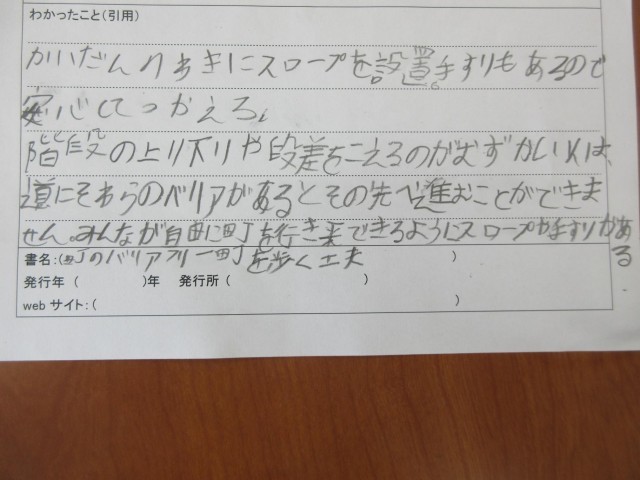 わかったこと(引用)
かいだんのわきにスロープを設置。手すりもあるので
安心してつかえる。
階段の上り下りや段差をこえるのがむずかしい人は、
道にそれらのバリアがあるとその先へ進むことができま
せん。みんなが自由に町を行き来できるようにスロープや手すりがある
書名:(町のバリアフリー町を歩く工夫)
発行年()年 発行所()
webサイト:()